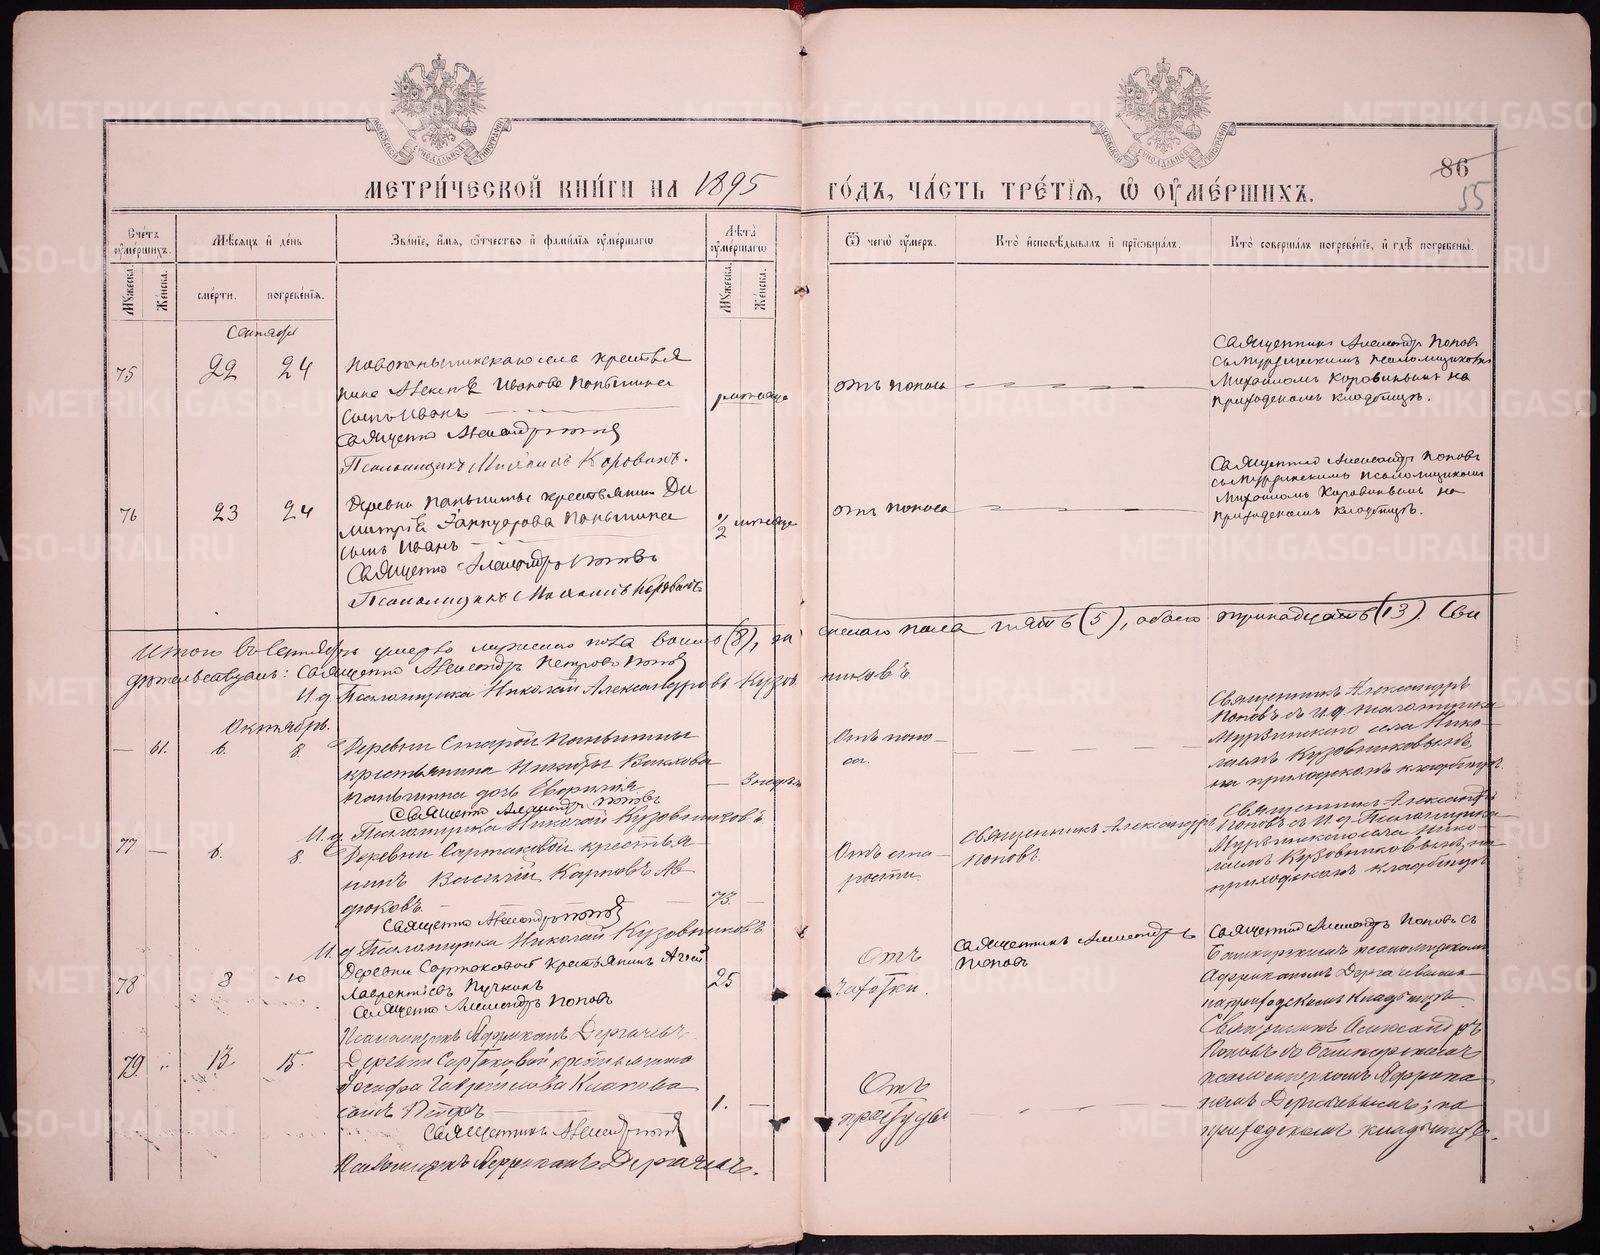 МЕТРИ́ЧЕСКОЙ КНИ́ГИ НА 1895
ГО́ДЪ, ЧА́СТЬ ТРЕ́ТЇѦ, Ѡ ОУМЕ́РШИХЪ.
86
55
Сче́тъ оуме́ршихъ.
Мѣ́сѧцъ и҆ де́нь
Зва́нїе, и҆́мѧ, ѻ҆́тчество и҆ фами́лїѧ оуме́ршагѡ
Лѣ́та оуме́ршагѡ
Ѿ чегѡ̀ оу́меръ.
Кто̀ и҆сповѣ́дывалъ и҆ прїѡбща́лъ.
Кто̀ соверша́лъ погребе́нїе, и҆ гдѣ̀ погребены̀.
Му́жеска.
Же́нска.
сме́рти.
погребе́нїѧ.
Му́жеска.
Же́нска.
Сентябрь
75
22
24
крестья
нина Алексѣя Иванова Паньшина
сынъ Иванъ
Священно Александръ Поповъ
Псаломщикъ Михаилъ Коровинъ.
отъ поноса
Священникъ Александръ Поповъ
съ Мурзинскимъ псаломщикомъ
Михаиломъ Коровинымъ на
приходскомъ кладбищѣ.
76
23
24
Деревни Паньшиной крестьянина Ди
митрія Паньшина
сынъ Иванъ
Священно Александръ Поповъ
Псаломщикъ Михаилъ Коровинъ
1/2 мѣсяца
отъ поноса
Священно Александръ Поповъ
съ Мурзинскимъ псаломщикомъ
Михаиломъ Коровинымъ на
приходскомъ кладбищѣ.
Итого въ Сентябрѣ умерло мужеска пола восемь (8), женскаго пола пять (5), обоего тринадцать (13). Сви
дѣтельствуемъ: Священно Александръ Петровъ Поповъ
И.д. Псаломщика Николай Александровъ Кузовниковъ.
Октябрь.
— 61. 6. 8.
Деревни Старой Паньшины
крестьянина Никиты
Паньшина дочь Евфимія
Священно Александръ Поповъ
И.д. Псаломщика Николай Кузовниковъ
3 недѣли
Отъ поно-
са.
Священникъ Александръ
Поповъ съ И.д. псаломщика
Мурзинскаго села Нико-
лаемъ Кузовниковымъ,
на приходскомъ кладбищѣ.
77 — 6. 8.
Деревни Сартаковой крестья-
нинъ Василій Карповъ Ав-
дюковъ.
Священно Александръ Поповъ
И.д. Псаломщика Николай Кузовниковъ
73.
Отъ ста-
рости.
Священникъ Александръ
Поповъ.
Священникъ Александръ
Поповъ съ И.д. Псаломщика
Мурзинскаго села Нико-
лаемъ Кузовниковымъ, на
приходскомъ кладбищѣ
78
8
10
Деревни Сартаковой крестьянинъ
Лаврентіевъ Пучкинъ
Священно Александръ Поповъ
Псаломщикъ Африканъ Дергачевъ
25
Отъ
чахотки.
Священникъ Александръ
Поповъ
Священно Александръ Поповъ съ
Башкирскимъ псаломщикомъ
Африканомъ Дергачевымъ
на приходскомъ кладбищѣ.
79.
13.
15.
Деревни Сартаковой крестьянина
Іосифа Гавриилова
сынъ Петръ
Священникъ Александръ Поповъ
Псаломщикъ Африканъ Дергачевъ.
1.
Отъ
простуды
Священникъ Александръ
Поповъ съ Башкирскимъ
псаломщикомъ Африка
номъ Дергачевымъ; на
приходскомъ кладбищѣ.